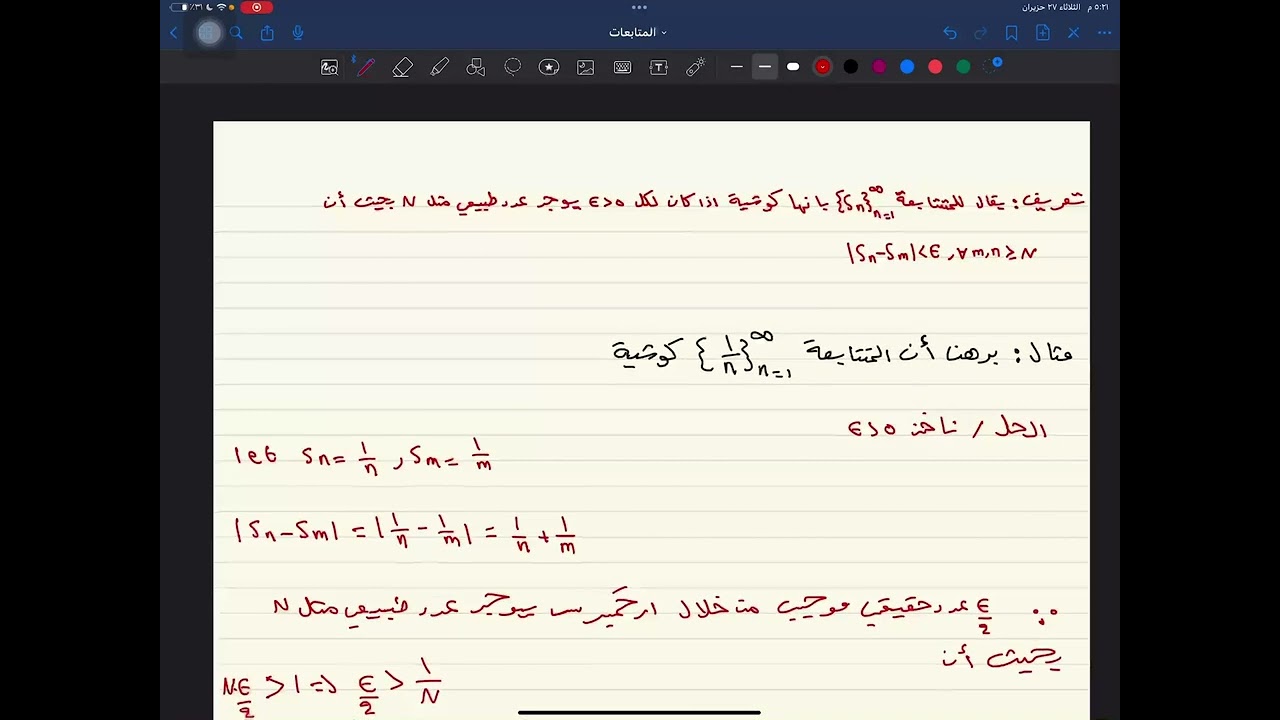 ٥:٢١ م الثلاثاء ٢٧ حزيران
٪٣١
المتابعات
تعريف: يقال للمتتابعة {Sn}∞n=1 بانها كوشية اذا كان لكل ϵ>0 يوجد عدد طبيعي مثل N بحيث أن
|Sn-Sm|<ϵ, ∀m,n≥N
مثال: برهن أن المتتابعة {1/n}∞n=1 كوشية
الحل / ناخذ ϵ>0
let Sn=1/n, Sm=1/m
|Sn-Sm|=|1/n-1/m|=1/n+1/m
∵ ϵ/2 عدد حقيقي موجب من خلال ارخميدس يوجد عدد طبيعي مثل N
بحيث أن
N.ϵ/2 > 1 => ϵ/2 > 1/N